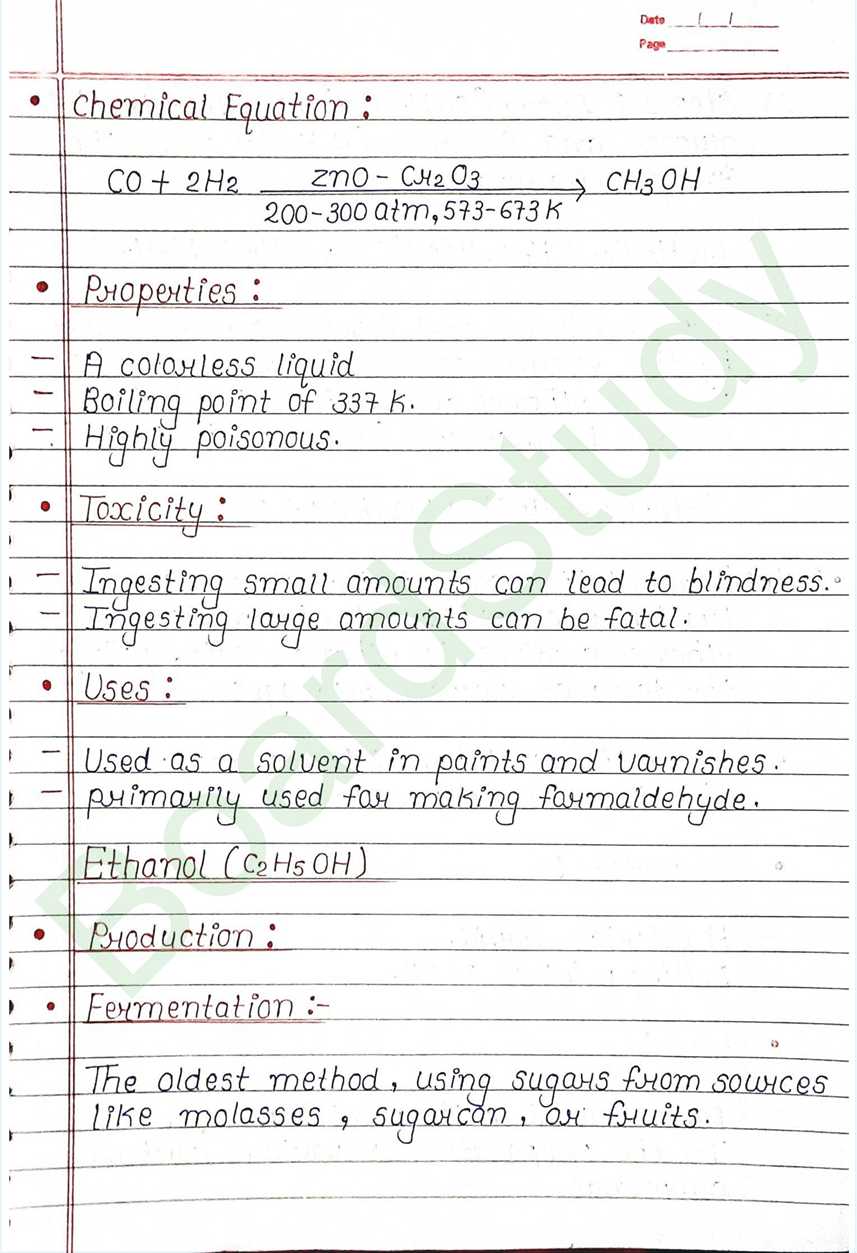 Date / /
Page
• Chemical Equation :
CO + 2H2 ZnO - Cr2O3 → CH3OH
200-300 atm, 573-673 K
• Properties :
— A colorless liquid
— Boiling point of 337 K.
— Highly poisonous.
• Toxicity :
— Ingesting small amounts can lead to blindness.
— Ingesting large amounts can be fatal.
• Uses :
— Used as a solvent in paints and varnishes.
— primarily used for making formaldehyde.
Ethanol (C2H5OH)
• Production :
• Fermentation :-
The oldest method, using sugars from sources
like molasses, sugarcan, or fruits.
BoardStudy